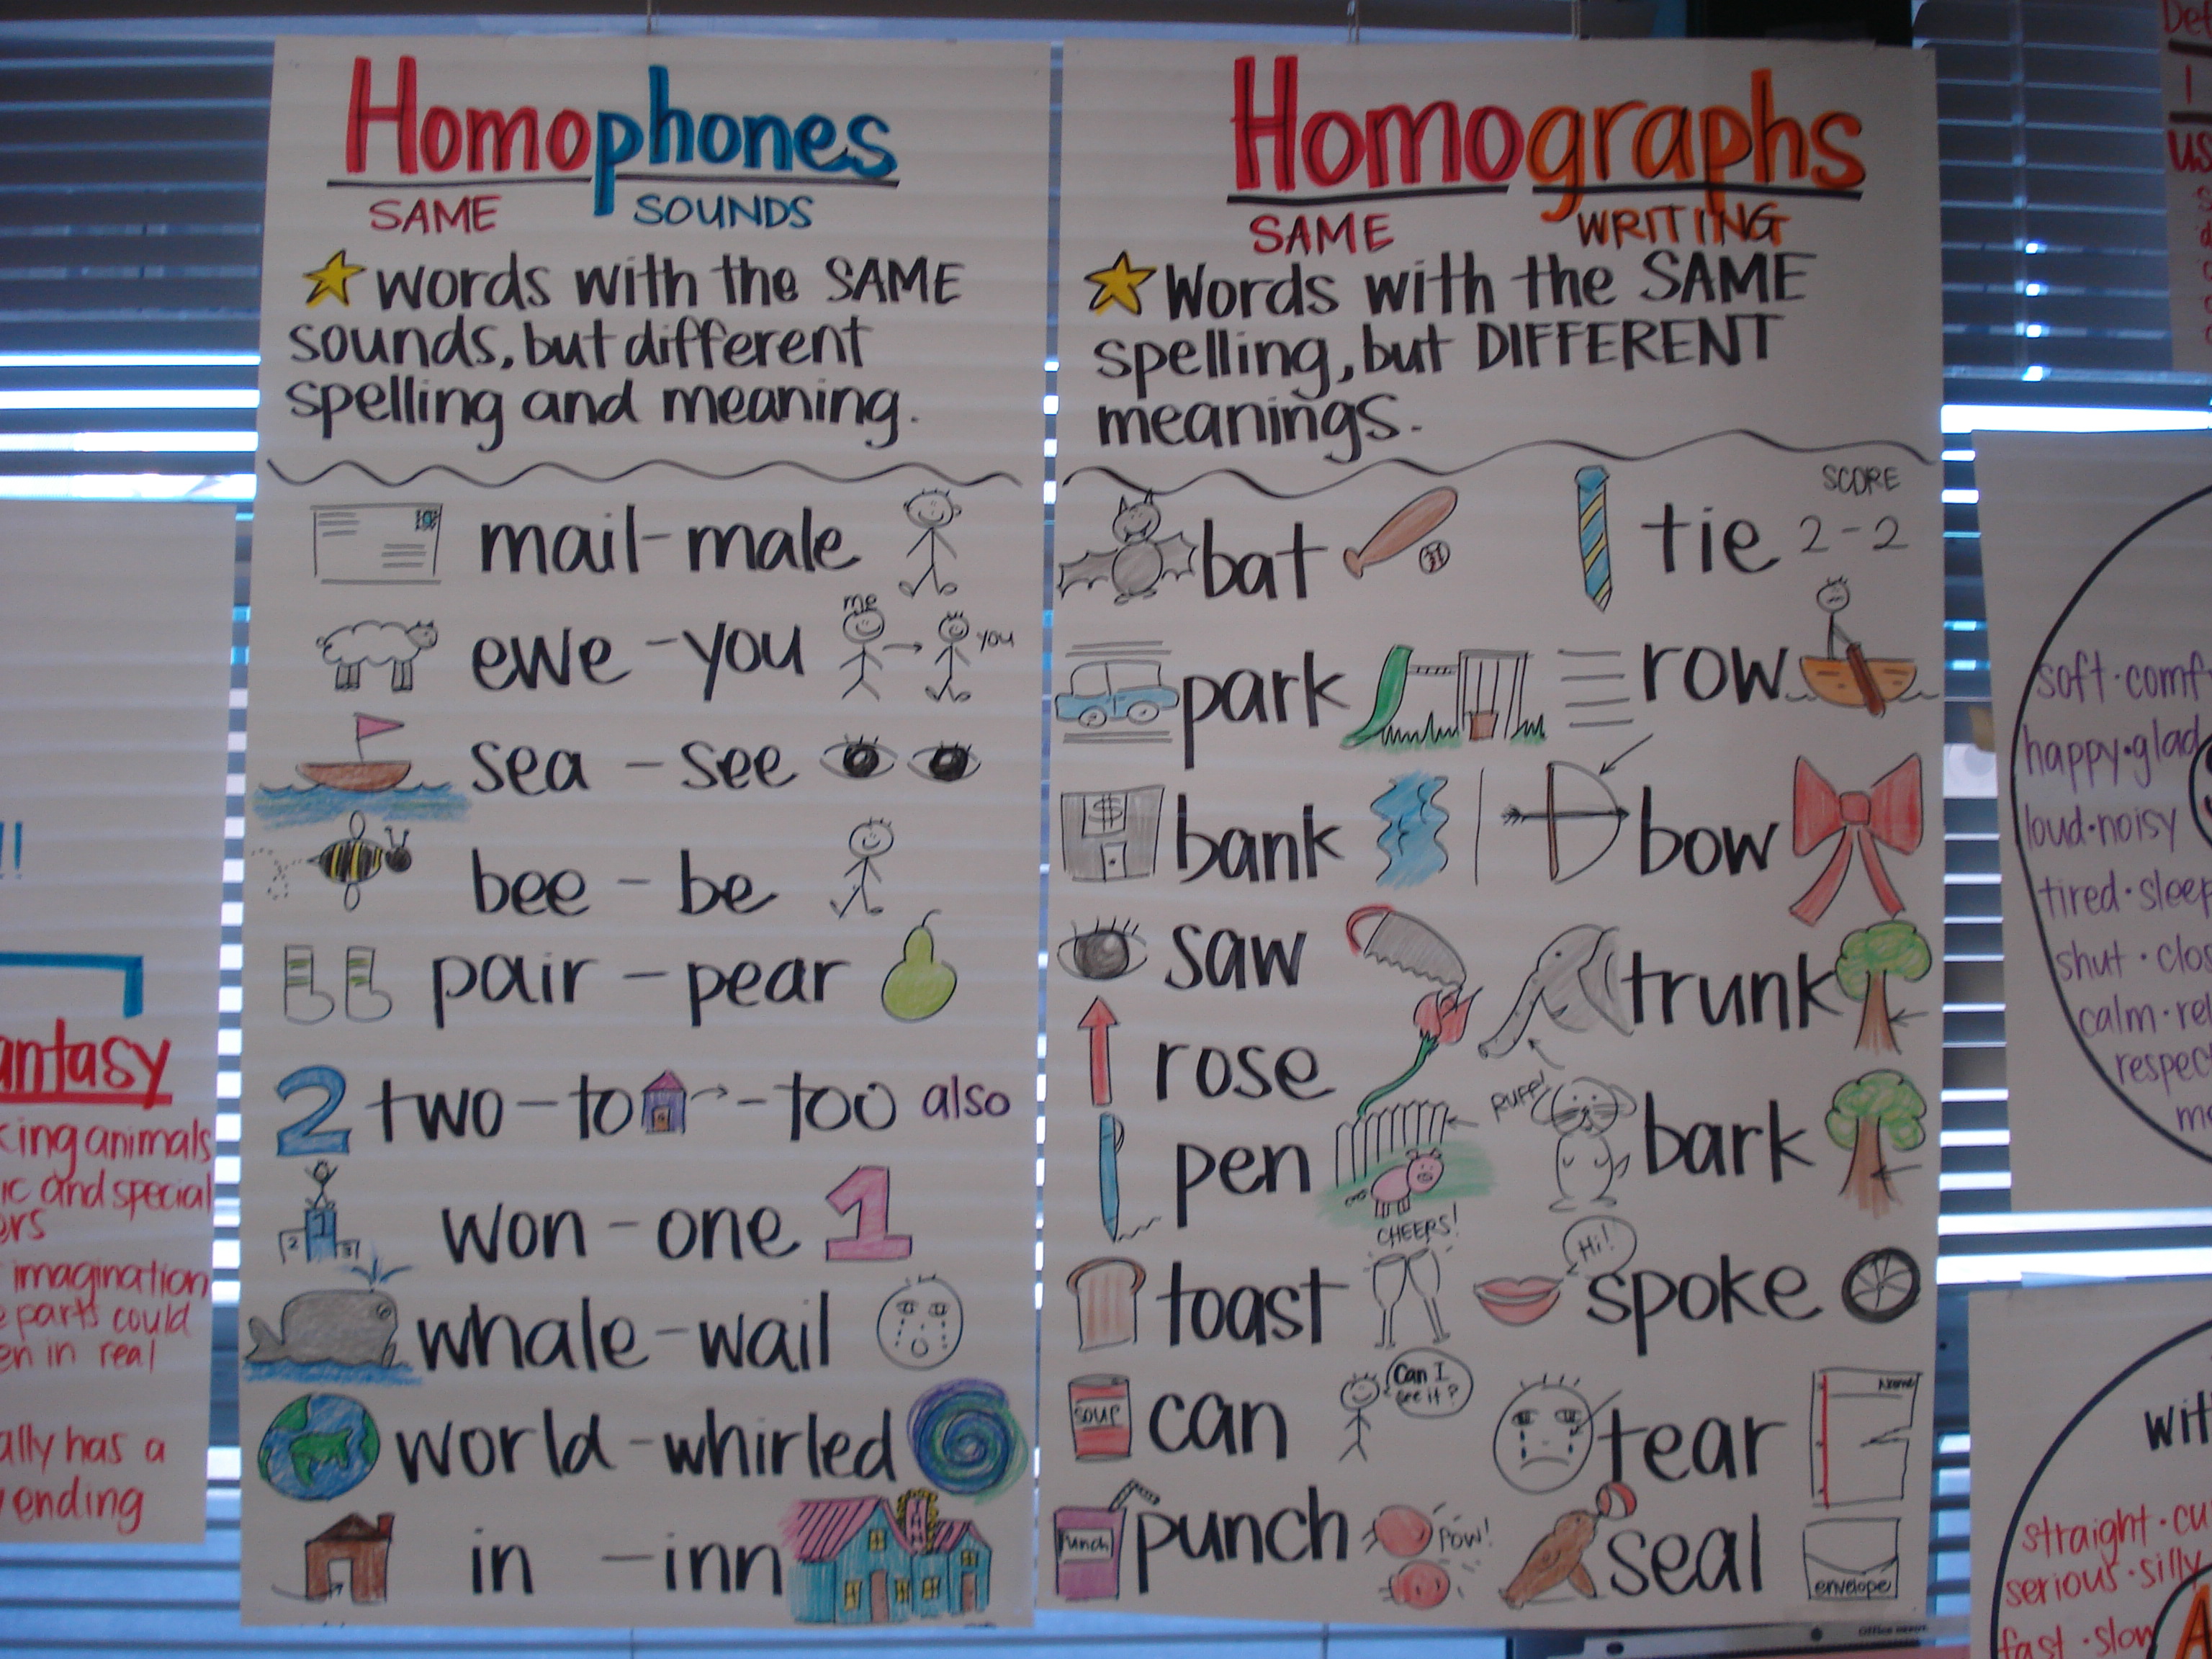 Homophones
SAME SOUNDS
words with the SAME
sounds, but different
spelling and meaning.
mail - male
ewe - you me you
sea - see
bee - be
pair - pear
2 two - to - too also
won - one 1
1
2 3
whale - wail
world - whirled
in - inn
Homographs
SAME WRITING
Words with the SAME
spelling, but DIFFERENT
meanings.
bat
park
$ bank
saw
rose
pen
CHEERS!
toast
SOUP can Can I
see it?
Punch punch POW!
SCORE
tie 2-2
row
bow
trunk
RUFF! bark
Hi!
spoke
Name
tear
seal envelope
!!
antasy
king animals
ic and special
ers
imagination
e parts could
en in real
ally has a
ending
soft · comfy
happy · glad
loud · noisy
tired · sleep
shut · clos
calm · rel
respec
me
wit
straight · cu
serious · silly
fast · slow
A
De
I
us
OFFICE DEPOT